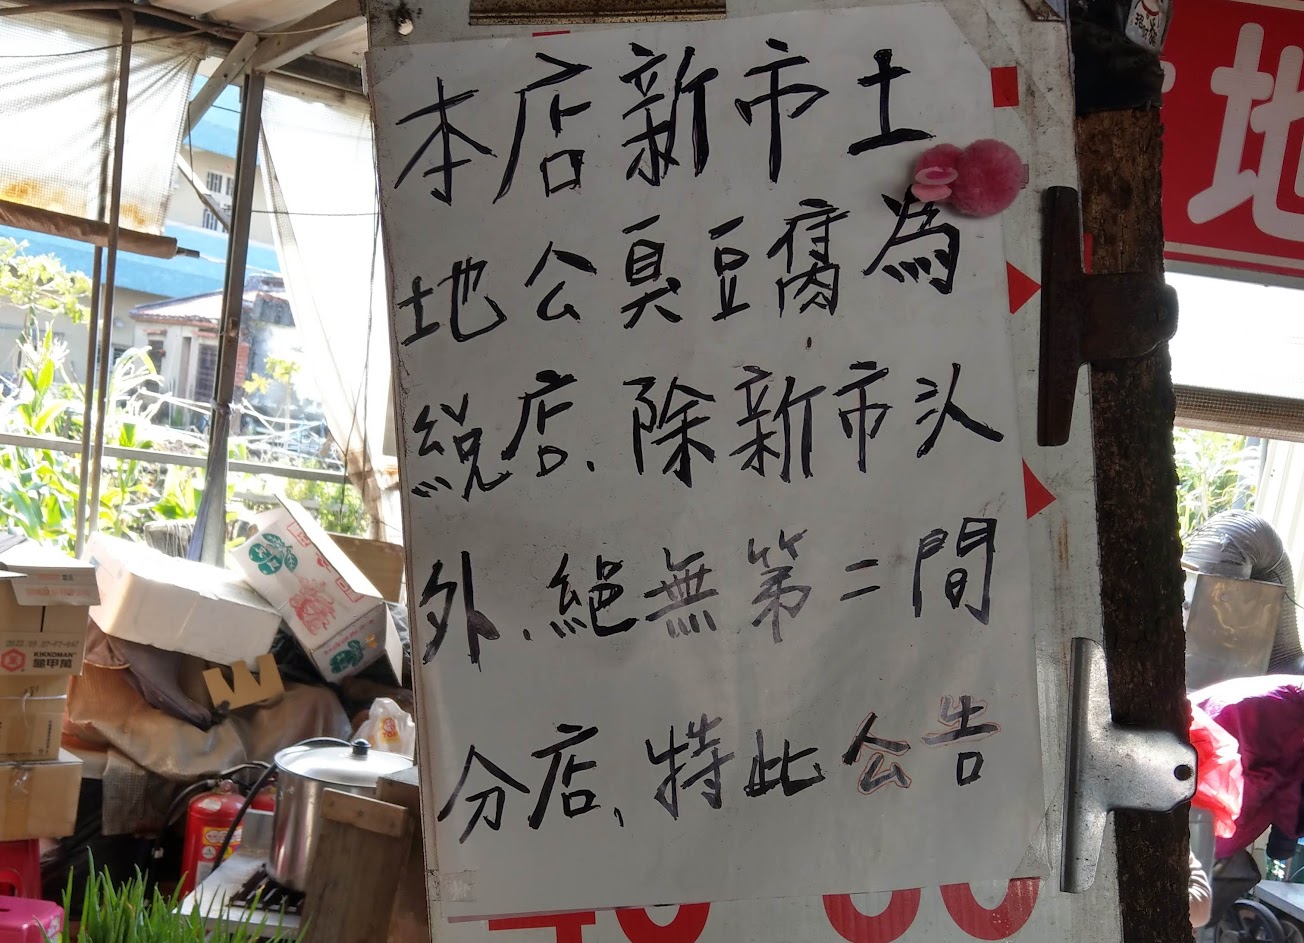 本店新市土
地公臭豆腐為
総店、除新市头
外、絕無第二間
分店、特此公告
地
KIKKOMAN
龜甲萬